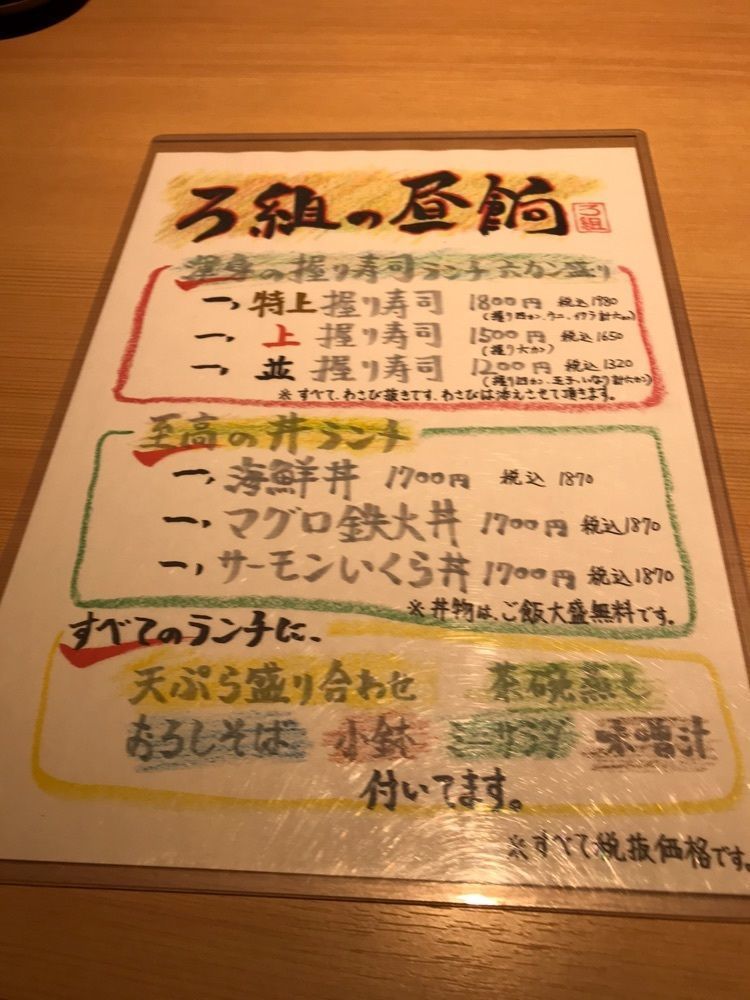 ろ組の昼餉
ろ組
渾身の握り寿司ランチ六カン盛り
一、特上握り寿司 1800円 税込1980
(握り四カン、ウニ、イクラ計六カン)
一、上握り寿司 1500円 税込1650
(握り六カン)
一、並握り寿司 1200円 税込1320
(握り四カン、玉子、いなり計六カン)
※すべて、わさび抜きです、わさびは添えさせて頂きます。
至高の丼ランチ
一、海鮮丼 1700円 税込1870
一、マグロ鉄火丼 1700円 税込1870
一、サーモンいくら丼 1700円 税込1870
※丼物は、ご飯大盛無料です。
すべてのランチに、
天ぷら盛り合わせ 茶碗蒸し
おろしそば 小鉢 ミニサラダ 味噌汁
付いてます。
※すべて税抜価格です。